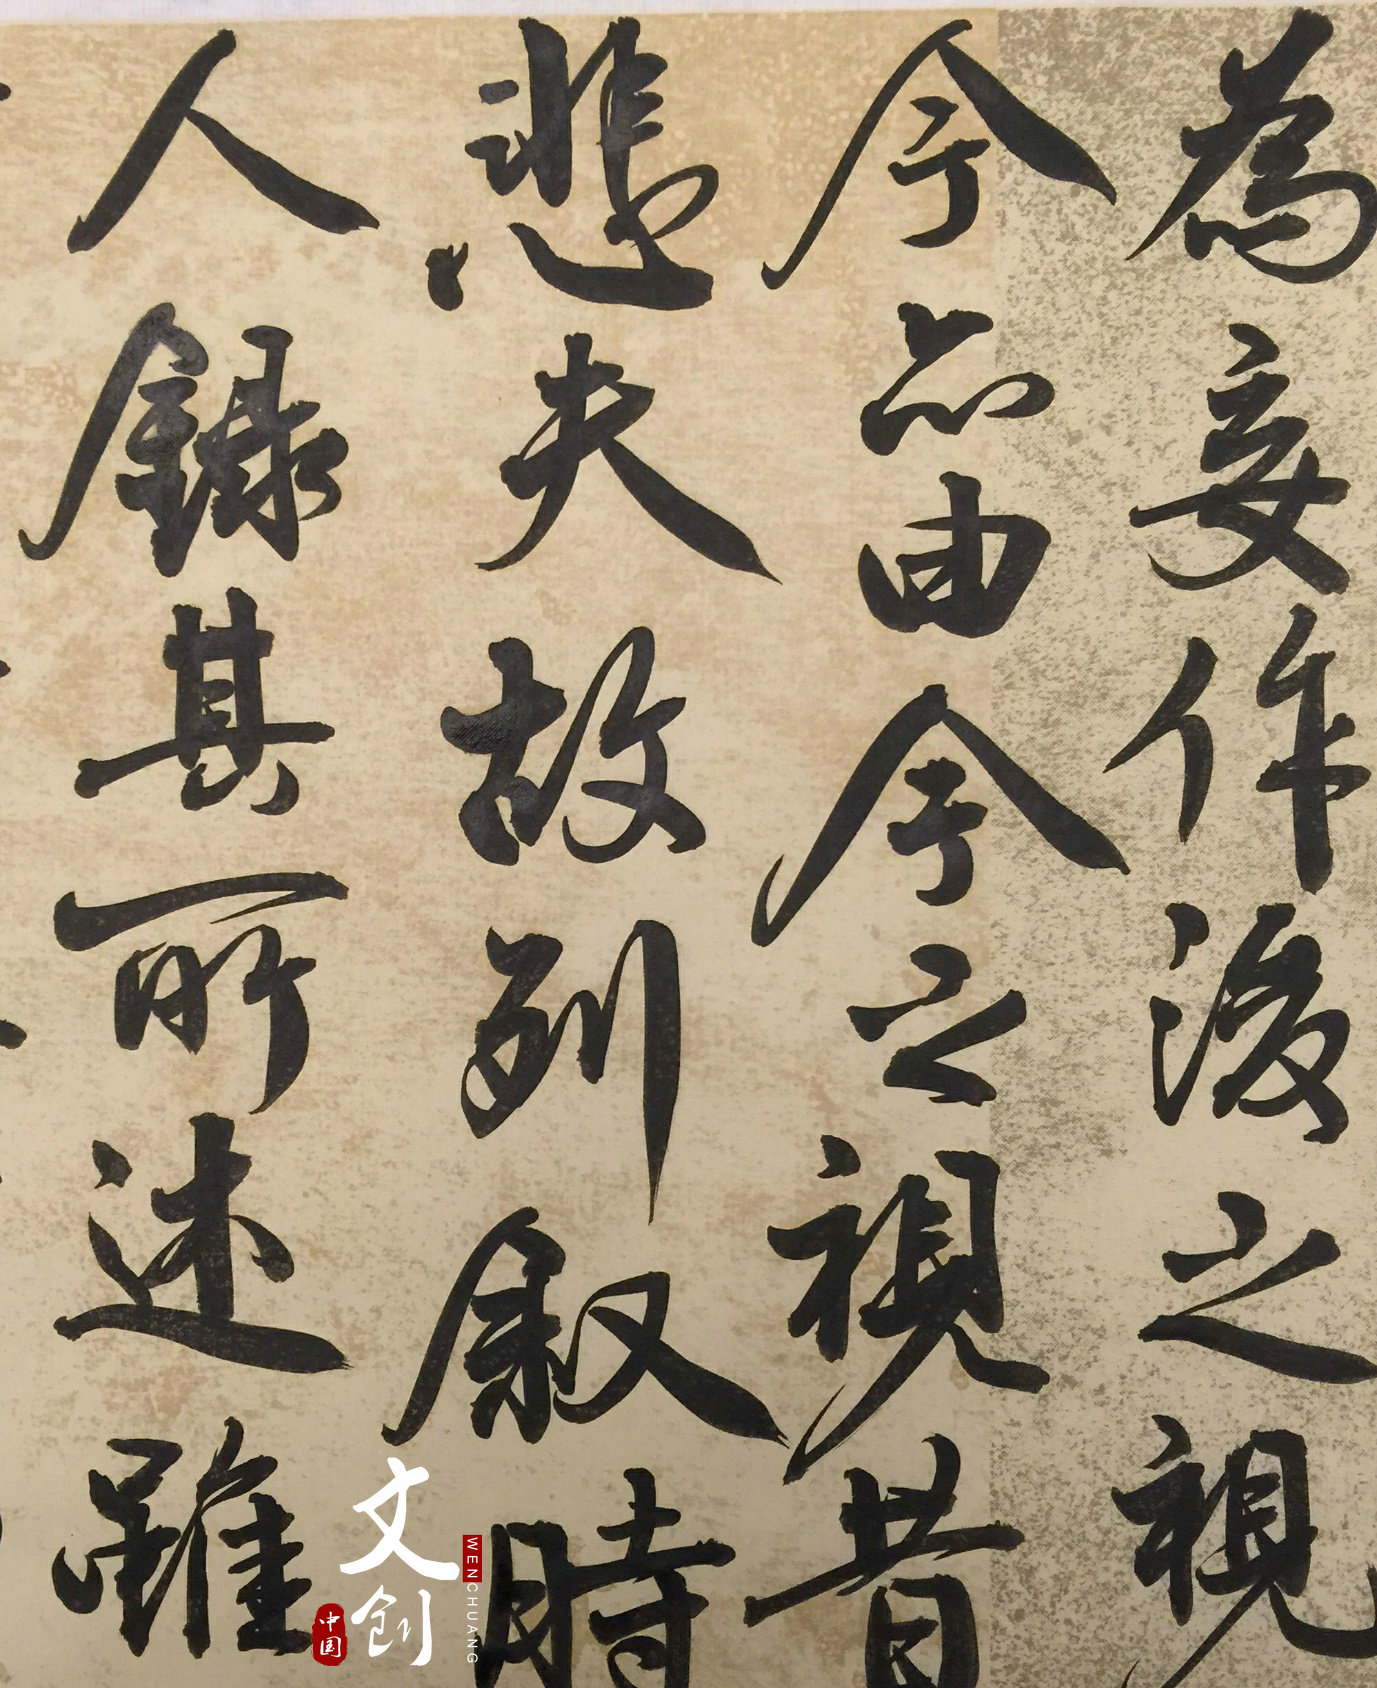 為妄作後之視
今亦由今之視昔
悲夫故列叙時
人錄其所述雖
文创
WENCHUANG
中国